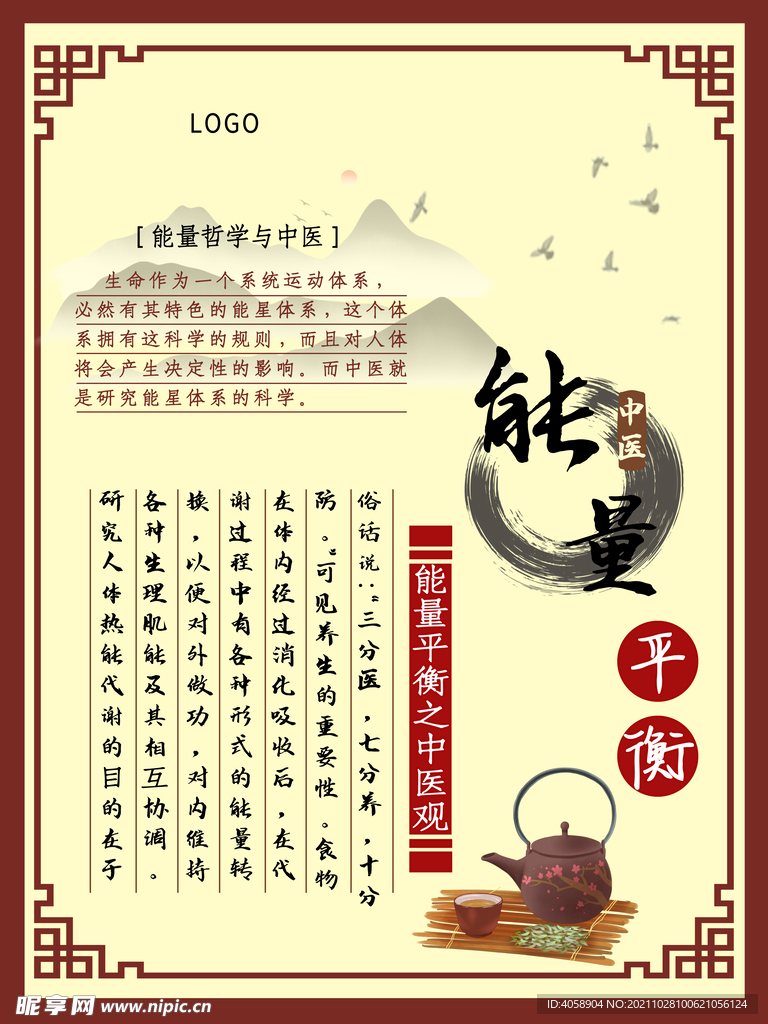 LOGO
[能量哲学与中医]
生命作为一个系统运动体系，
必然有其特色的能星体系，这个体
系拥有这科学的规则，而且对人体
将会产生决定性的影响。而中医就
是研究能星体系的科学。
能量
中医
平衡
能量平衡之中医观
俗话说：“三分医，七分养，十分
防。”可见养生的重要性。食物
在体内经过消化吸收后，在代
谢过程中有各种形式的能量转
换，以便对外做功，对内维持
各种生理肌能及其相互协调。
研究人体热能代谢的目的在于
昵享网 www.nipic.cn
ID:4058904 NO:20211028100621056124